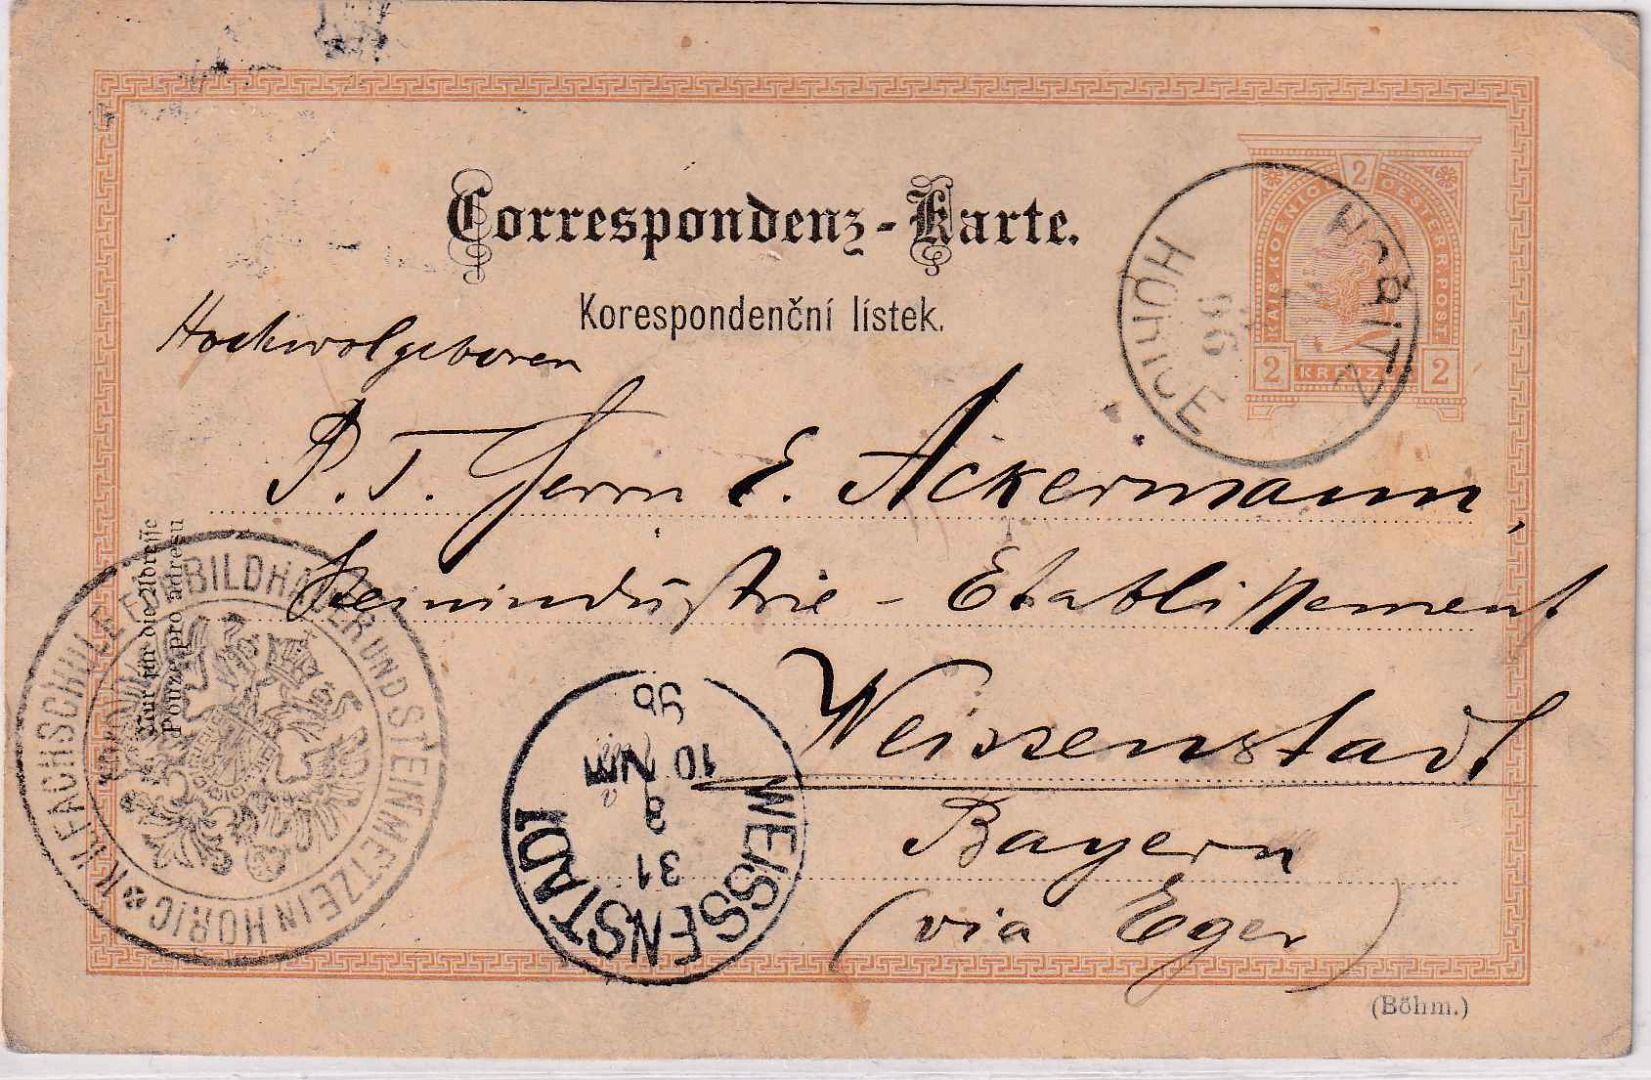 Correspondenz-Karte.
Korespondenční lístek.
KAIS. KOENIGL. OESTERR. POST.
2
2 KREUZER 2
HOŘICE
96
Hochwolgeboren
P. T. Herrn E. Ackermann,
Steinindustrie - Etablissement
Weissenstadt
Bayern
(via Eger)
Nur für die Adresse
Pouze pro adresu
K.K. FACHSCHULE FÜR BILDHAUER UND STEINMETZE IN HORIC
WEISSENSTADT
31
3
10 NM
96
(Böhm.)